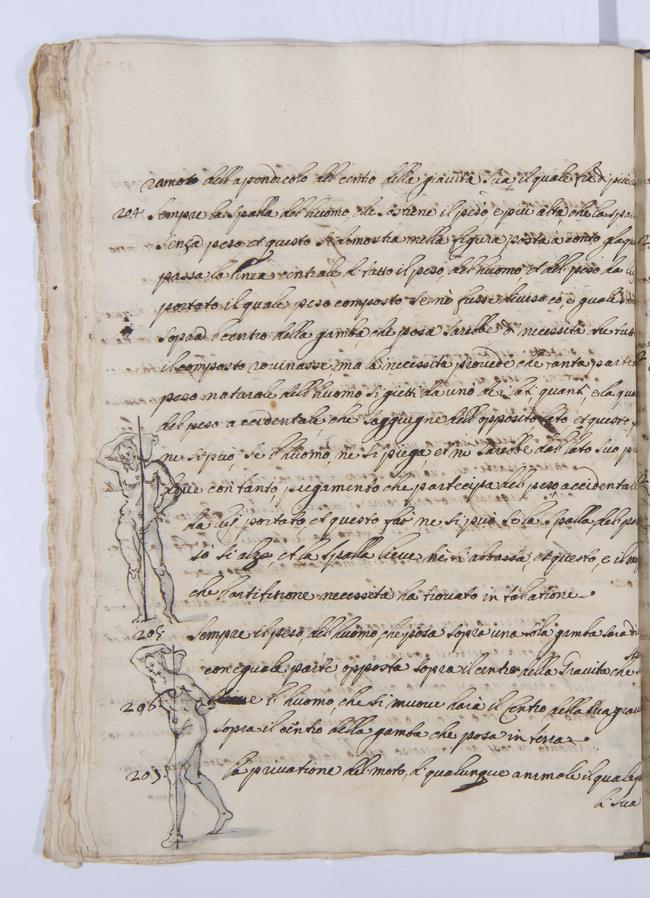 ramoto dell apendicolo del cento della gravita sua il quale
204 Sempre la Spalla del huomo, che sostiene il peso e piu alta che la spal
senza peso et questo si domostra nella figura posta a conto
passa la linea centrale di tutto il peso, del huomo et del peso da lu
portato il quale peso composto se nō fusse diviso cō equale
sopra l centro della gamba che posa sarebbe d necessita che tutt
il composto rovinasse, ma la necessita provede che tanta parte
peso naturale dell huomo si gietti da uno de i lati quant e la qua
del peso accidentale, che s aggiugne dell opposito lato et questo
ne si puo, se l huomo, ne si piega et ne dal lato suo
lieve con tanto piegamento che partecipa del peso accidentale
da lui portato et questo far ne si puo se la spalla, del pe
so si alza, et la spalla lieve nē si abbassa, et questo, e il
che l artifitione necessita ha trovato in tal attione
205 Sempre il peso del huomo, che posa sopra una sola gamba sara
con equale parte opposta sopra il centro della Gravita che
206 l huomo, che si muove hara il Centro della sua grav
sopra il cēntro della gamba che posa in terra
La privatione del moto, di qualunque animale il quale
di sua